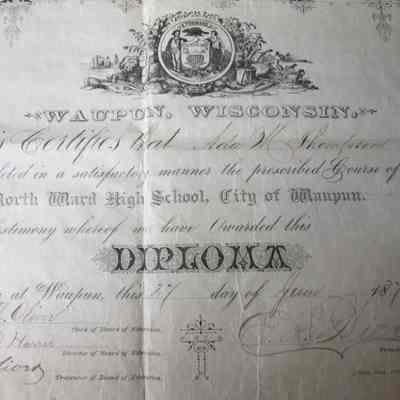 WAUPUN, WISCONSIN,
Certifies that Ada M. Thompson
leted in a satisfactory manner the prescribed Course of
North Ward High School, City of Waupun.
stimony whereof we have Awarded this
DIPLOMA
at Waupun, this 27 day of June 187
Clerk of Board of Education.
Director of Board of Education.
Treasurer of Board of Education.